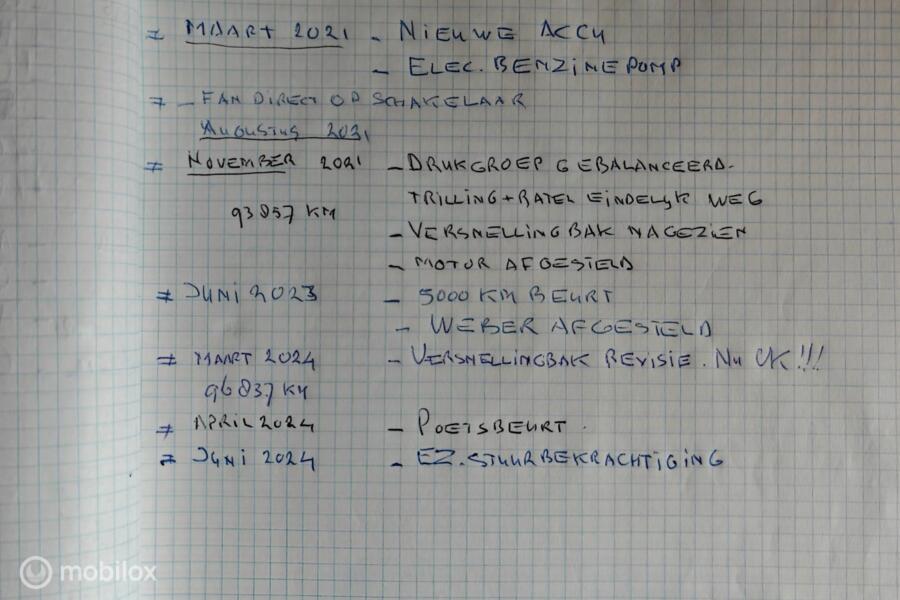 = MAART 2021 - NIEUWE ACCU
- ELEC. BENZINEPOMP
= - FAN DIRECT OP SCHAKELAAR
AUGUSTUS 2021
= NOVEMBER 2021 - DRUKGROEP GEBALANCEERD-
TRILLING + RATEL EINDELYK WEG
93857 KM
- VERSNELLINGBAK NAGEZIEN
- MOTOR AFGESTELD
= JUNI 2023 - 5000 KM BEURT
- WEBER AFGESTELD
= MAART 2024 - VERSNELLINGBAK REVISIE. NU OK!!!
96837 KM
= APRIL 2024 - POETSBEURT.
= JUNI 2024 - EZ. STUURBEKRACHTIGING
mobilox